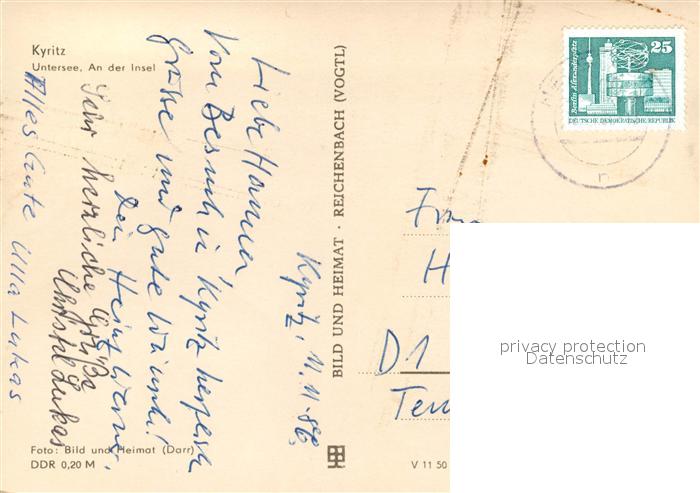 Kyritz
Untersee, An der Insel
Kyritz, 11.11.86
Liebe Hanna,
Vom Besuch in Kyritz herzliche
Grüße und gute Wünsche!
Dein Heinz Werner
Sehr herzliche Grüße
Christel Lukas
Alles Gute Ulla Lukas
Foto: Bild und Heimat (Darr)
DDR 0,20 M
BILD UND HEIMAT · REICHENBACH (VOGTL)
V 11 50
25
Berlin, Alexanderplatz
DEUTSCHE DEMOKRATISCHE REPUBLIK
Frau
H
D1
privacy protection
Datenschutz